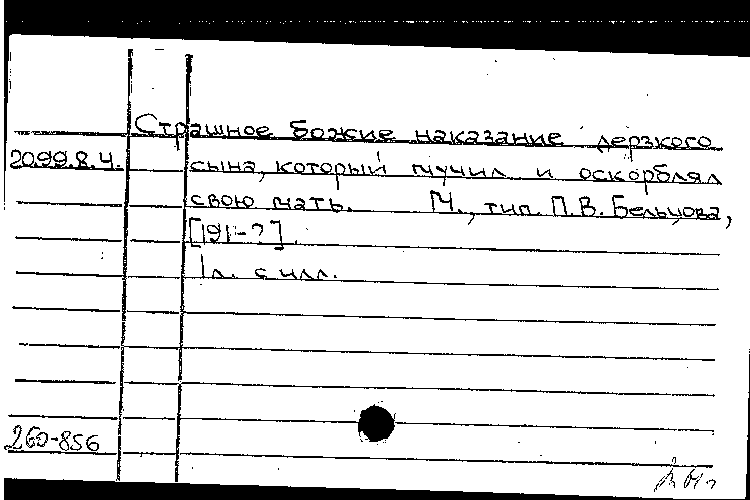 Страшное божие наказание дерзкого
20.99.8.4.
сына, который мучил и оскорблял
свою мать. М., тип. П.В. Бельцова,
[191-?].
1 л. с илл.
260-856